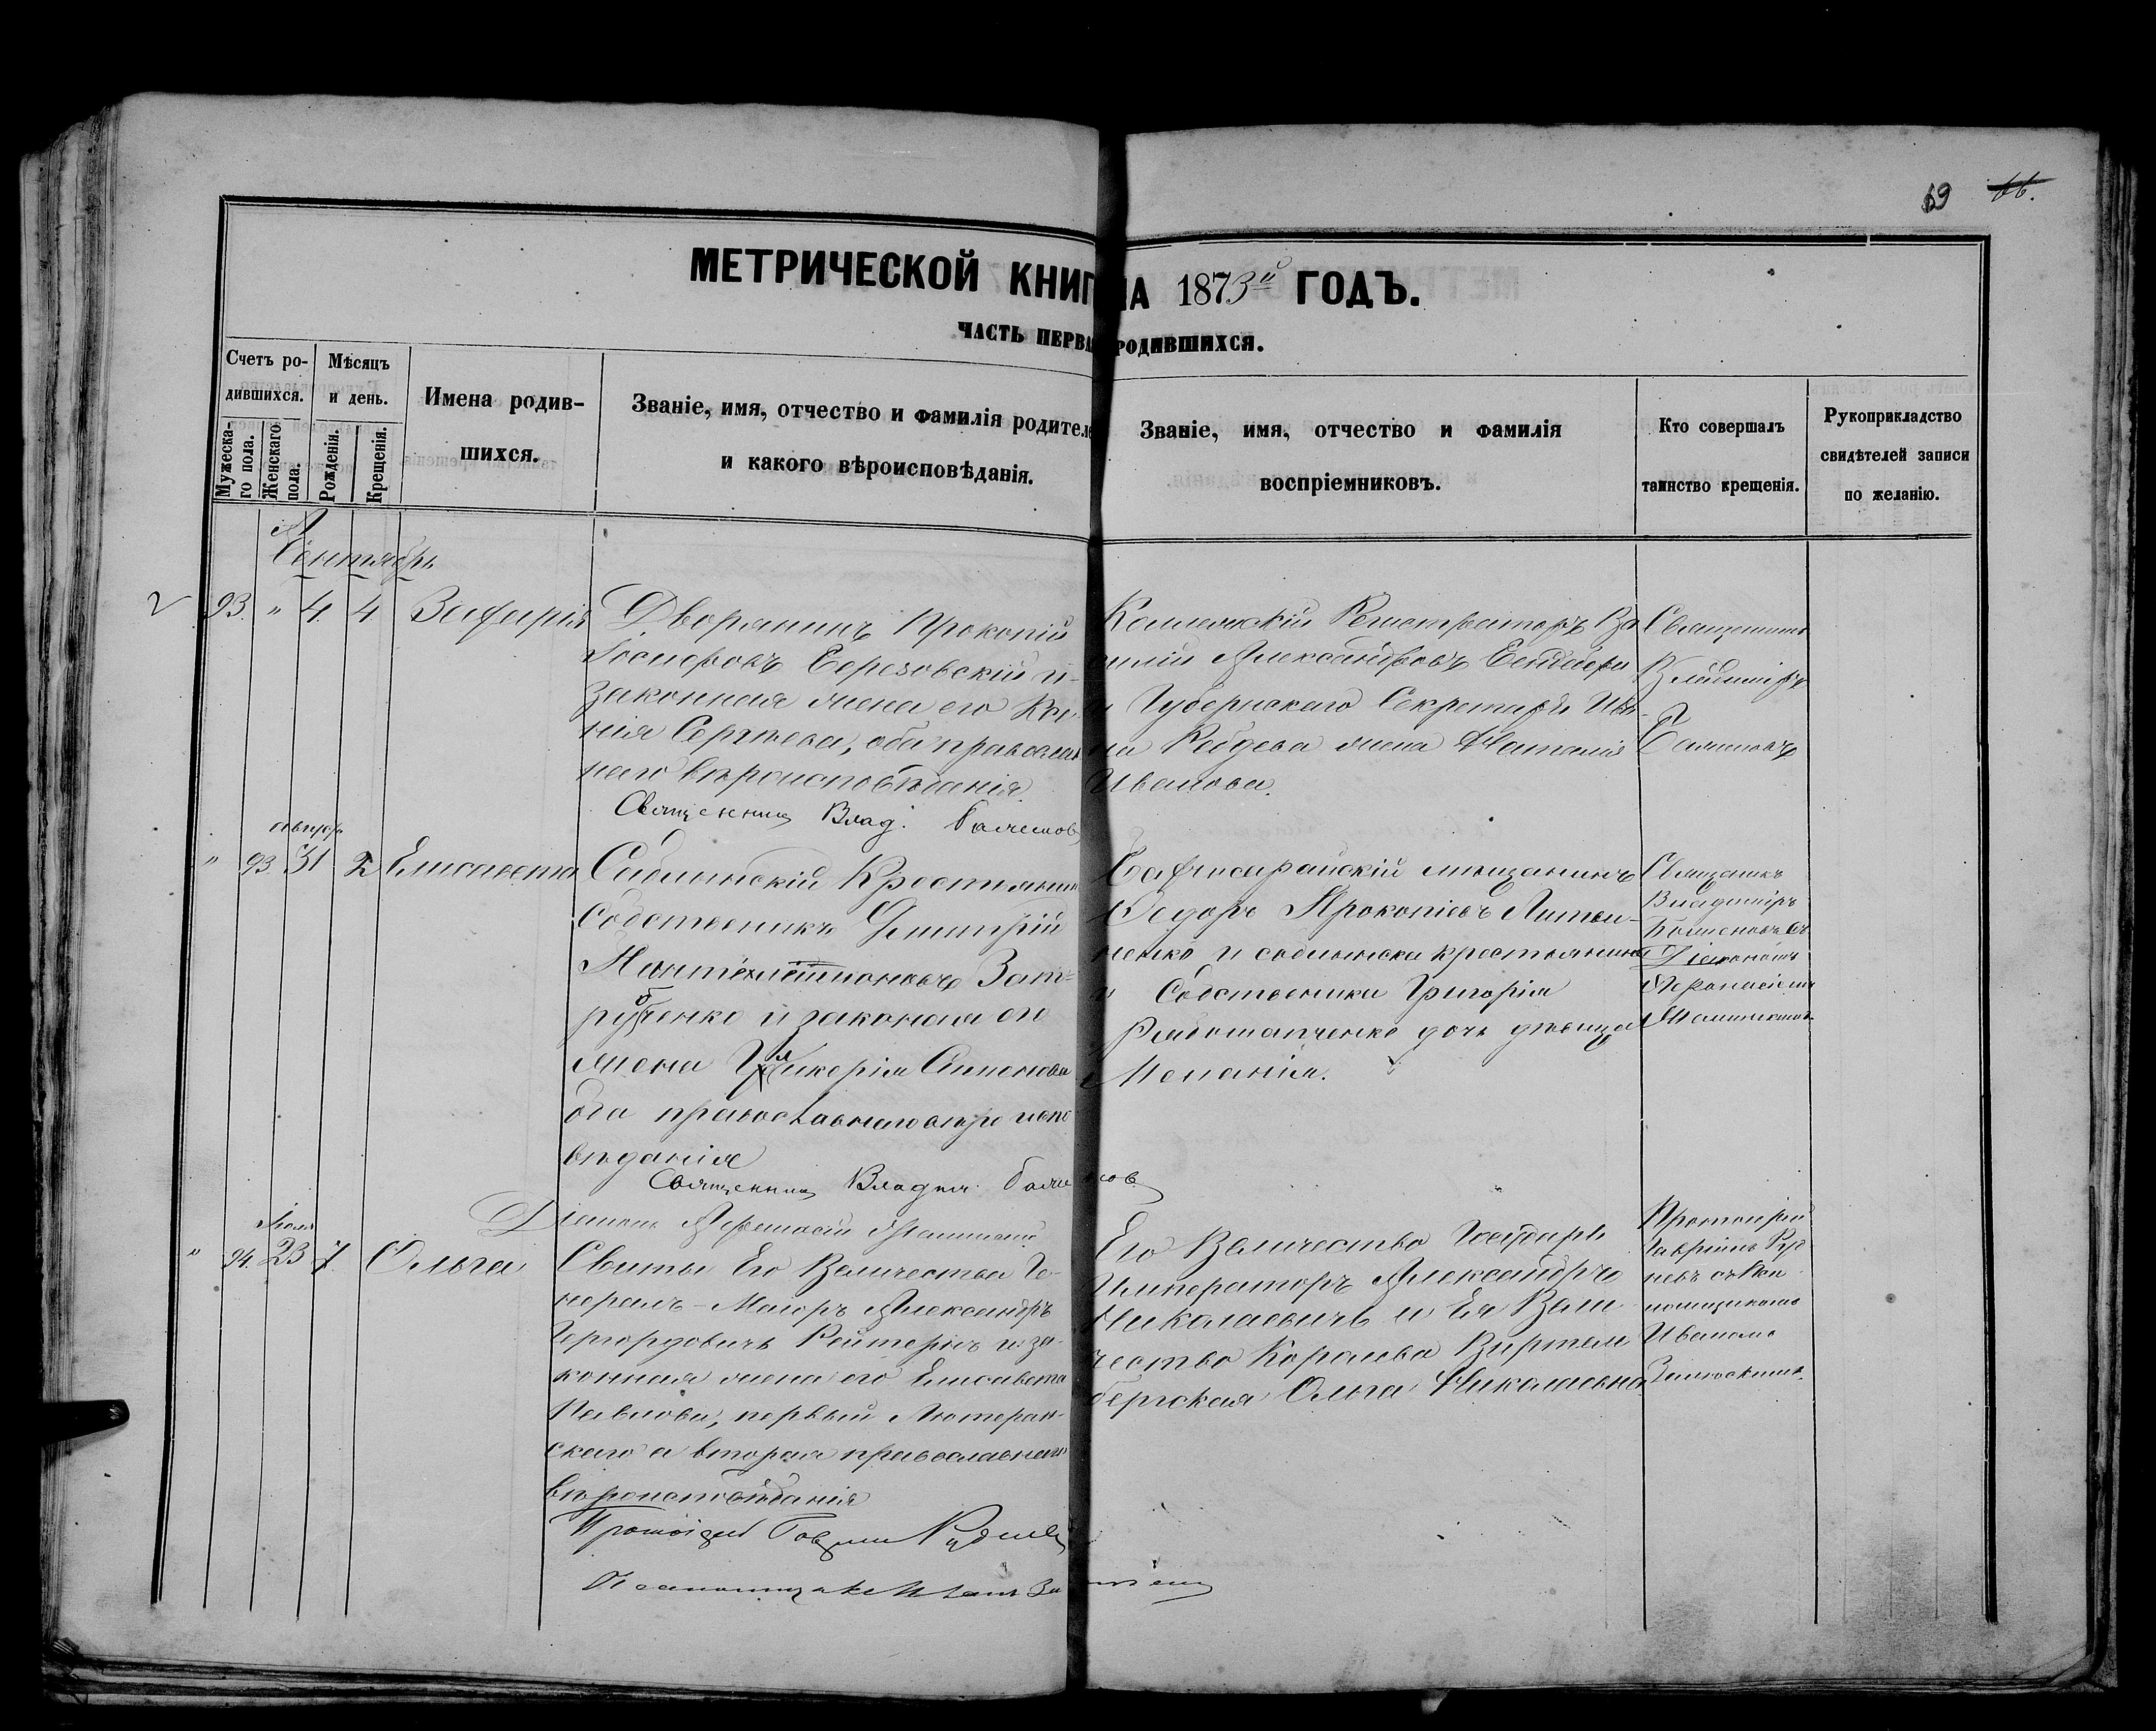 69 66.
МЕТРИЧЕСКОЙ КНИГ НА 1873й ГОДЪ.
ЧАСТЬ ПЕРВА РОДИВШИХСЯ.
Счетъ родившихся.
Мужеска-
го пола.
Женскаго
пола.
Мѣсяцъ
и день.
Рожденія.
Крещенія.
Имена родив-
шихся.
Званіе, имя, отчество и фамилія родителе
и какого вѣроисповѣданія.
Званіе, имя, отчество и фамилія
воспріемниковъ.
Кто совершалъ
таинство крещенія.
Рукоприкладство
свидѣтелей записи
по желанію.
Сентябрь
93. " 4. 4 Захарія
Дворянинъ Прокопій
Іосифовъ Березовскій и
законная жена его Ксе-
нія Сергѣева, оба православ
наго вѣроисповѣданія.
Священник Влад. Баженов
Коллежскій Регистраторъ Ва
силій Александровъ
и Губернскаго Секретаря Ива-
на жена Наталія
Иванова.
Священникъ
Владиміръ
Баженовъ
август
" 93 31 2 Елисавета
Саблынскій Крестьянинъ
Собственникъ Димитрій
Пантелеимоновъ Зат-
рубченко и законная его
жена Гликерія Симонова
оба православнаго вѣроиспо
вѣданія
Священник Владим. Баженов.
Діаконъ
Бахчисарайскій мѣщанинъ
Ѳедоръ Прокопіевъ Литви-
ненко и саблынска крестьянина
Собственника Григорія
Рябошапченко дочь дѣвица
Меланія.
Священникъ
Владиміръ
Баженовъ съ
Діакономъ
Іюля
" 94. 23 7. Ольга
Свиты Его Величества Ге-
нералъ-Маіоръ Александръ
Гергордовичъ Рейтернъ и за-
конная жена его Елисавета
Павлова, первый Лютеран-
скаго а вторая православнаго
вѣроисповѣданія
Протоіерей Гавріилъ Рудневъ
Псаломщикъ Иванъ
Его Величество Государь
Императоръ Александръ
Николаевичъ и Ея Вели
чество Королева Виртем
бергская Ольга Николаевна
Протоіерей
Гавріилъ Руд
невъ съ Пса
ломщикомъ
Иваномъ